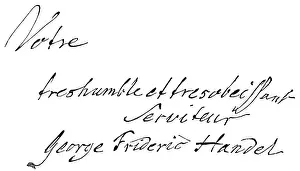 Votre
treshumble et tresobeissant
Serviteur
George Frideric Handel